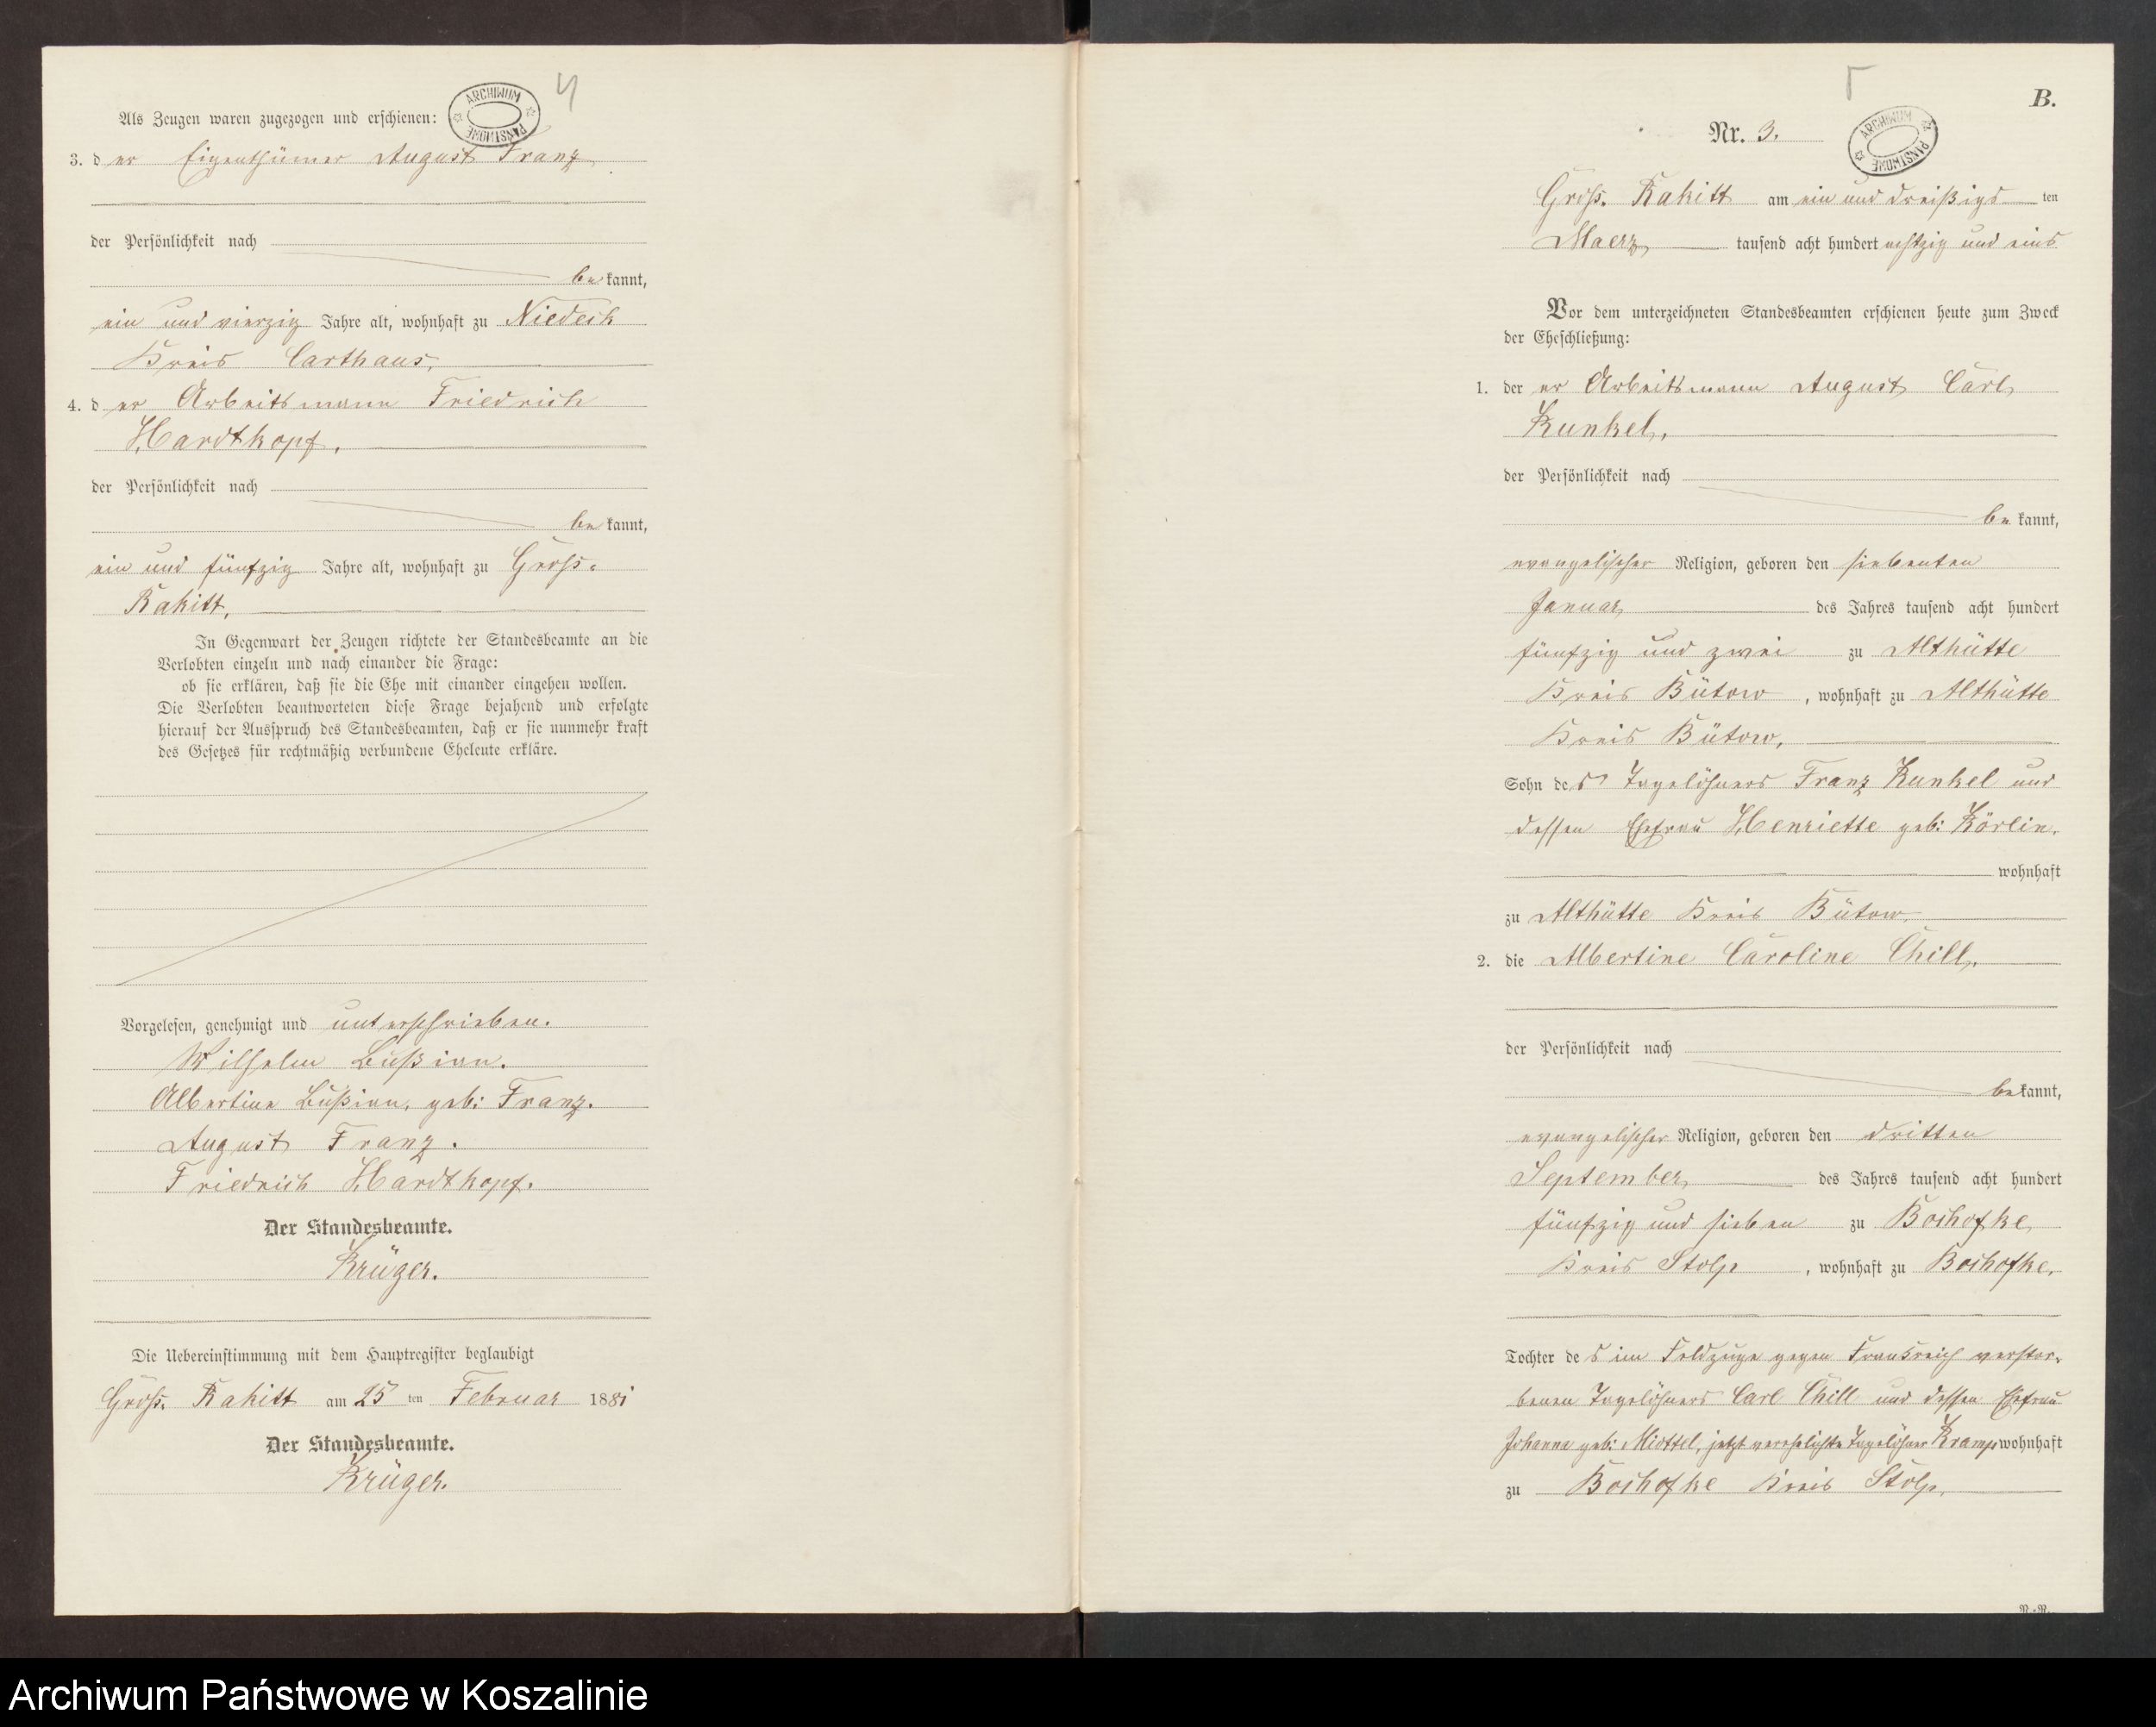 4
ARCHIWUM PAŃSTWOWE
Als Zeugen waren zugezogen und erschienen:
3. d er Eigenthümer August Franz
der Persönlichkeit nach
be kannt,
ein und vierzig Jahre alt, wohnhaft zu Niedeck
Kreis Carthaus,
4. d er Arbeitsmann Friedrich
Hardtkopf,
der Persönlichkeit nach
be kannt,
ein und fünfzig Jahre alt, wohnhaft zu Gross-
Rakitt,
In Gegenwart der Zeugen richtete der Standesbeamte an die
Verlobten einzeln und nach einander die Frage:
ob sie erklären, daß sie die Ehe mit einander eingehen wollen.
Die Verlobten beantworteten diese Frage bejahend und erfolgte
hierauf der Ausspruch des Standesbeamten, daß er sie nunmehr kraft
des Gesetzes für rechtmäßig verbundene Eheleute erkläre.
Vorgelesen, genehmigt und unterschrieben.
Wilhelm Bußian.
Albertine Bußian, geb: Franz.
August Franz.
Friedrich Hardtkopf.
Der Standesbeamte.
Krüger.
Die Uebereinstimmung mit dem Hauptregister beglaubigt
Gross. Rakitt am 25 ten Februar 1881
Der Standesbeamte.
Krüger.
B.
Nr. 3.
ARCHIWUM PAŃSTWOWE
Gross. Rakitt am ein und dreißigs ten
Maerz tausend acht hundert achtzig und eins
Vor dem unterzeichneten Standesbeamten erschienen heute zum Zweck
der Eheschließung:
1. der er Arbeitsmann August Carl
Kunkel,
der Persönlichkeit nach
be kannt,
evangelischer Religion, geboren den siebenten
Januar des Jahres tausend acht hundert
fünfzig und zwei zu Althütte
Kreis Bütow, wohnhaft zu Althütte
Kreis Bütow,
Sohn des Tagelöhners Franz Kunkel und
dessen Ehefrau Henriette geb: Körlin,
wohnhaft
zu Althütte Kreis Bütow.
2. die Albertine Caroline Chill,
der Persönlichkeit nach
bekannt,
evangelischer Religion, geboren den dritten
September des Jahres tausend acht hundert
fünfzig und sieben zu Bochofke
Kreis Stolp, wohnhaft zu Bochofke,
Tochter des im Feldzuge gegen Frankreich verstor-
benen Tagelöhners Carl Chill und dessen Ehefrau
Johanna geb: Miottel, jetzt verehelichte Tagelöhner Kramp wohnhaft
zu Bochofke Kreis Stolp,
Archiwum Państwowe w Koszalinie